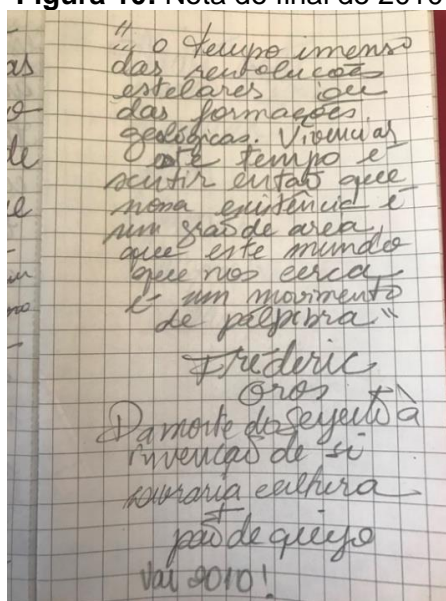 Figura 10: Nota do final de 2010
as
" o tempo imenso
das revoluções
estelares ou
das formações
geológicas. Vivenciar
este tempo é
sentir então que
nossa existência é
um grão de areia,
que este mundo
que nos cerca
é um movimento
de pálpebra"
Fréderic
Gros
Da morte do sujeito à
invenção de si
livraria cultura
+
pão de queijo
Vai 2010!